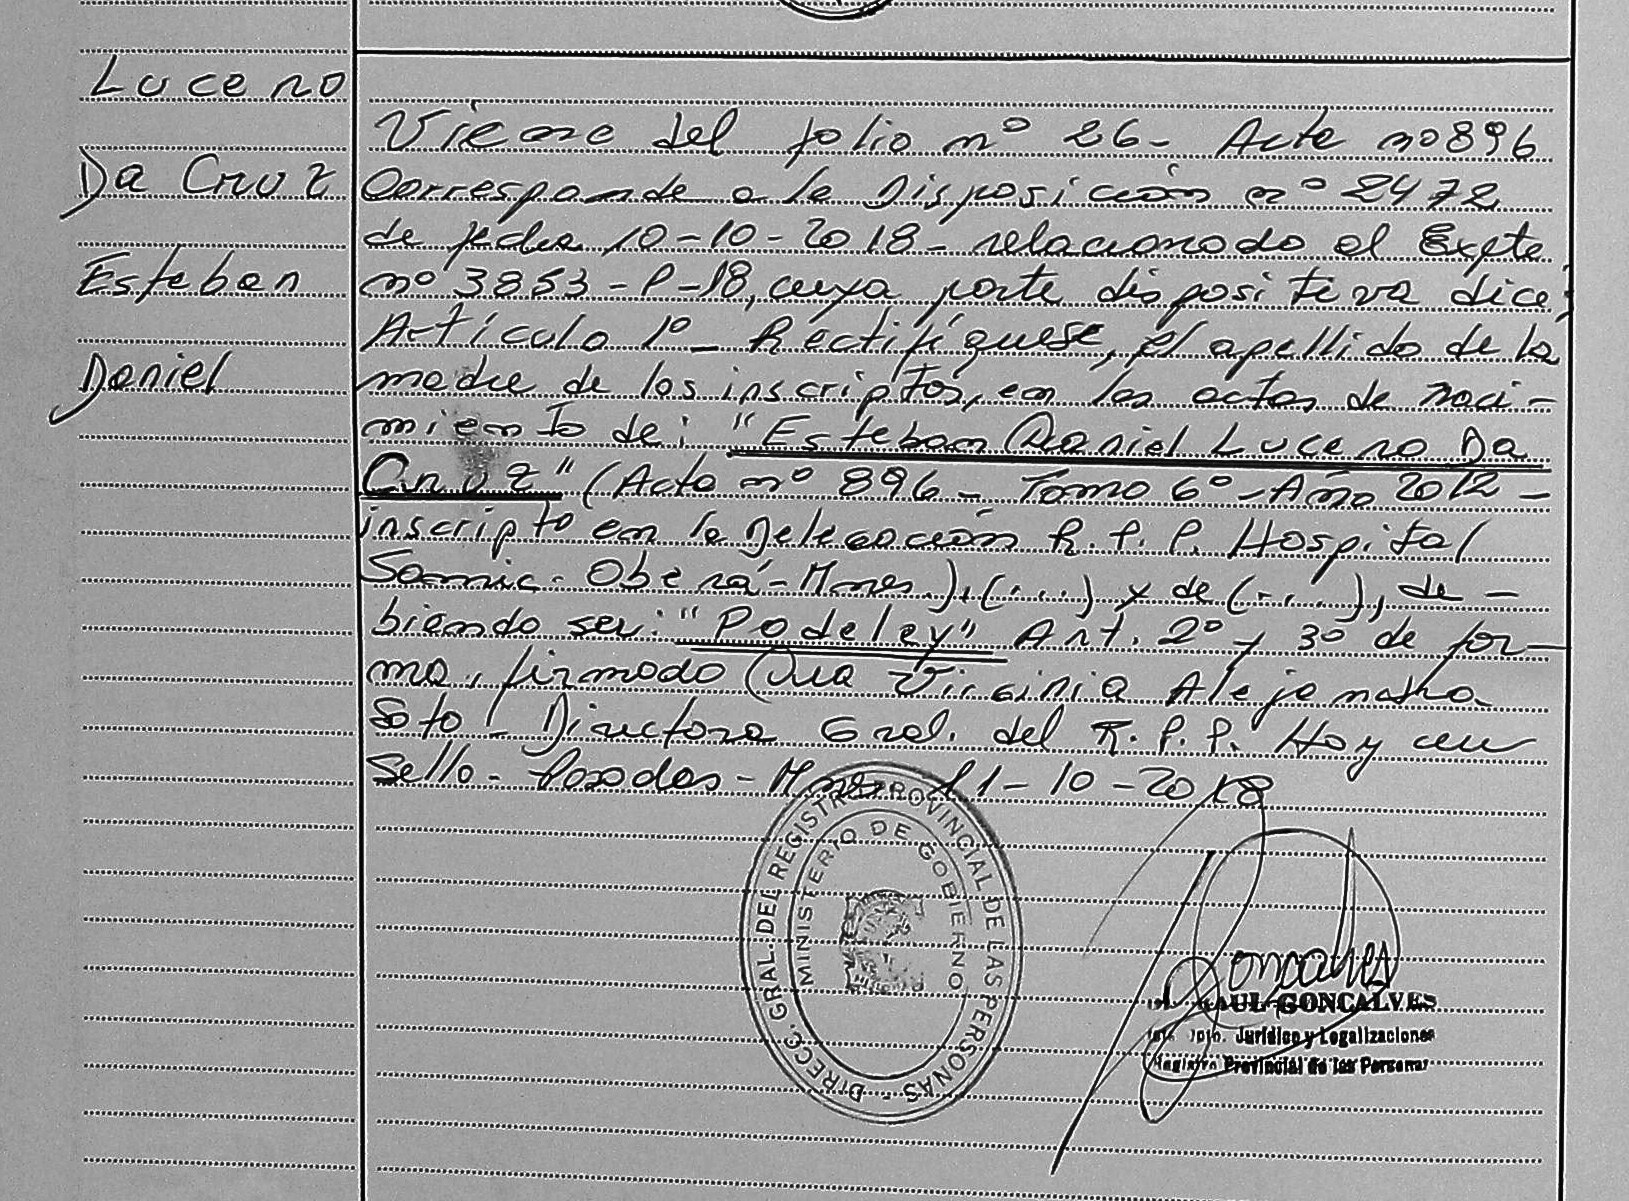 Lucero
Da Cruz
Esteban
Daniel
Viene del folio nº 26- Acta nº 896
Corresponde a la Disposición nº 2472
de fecha 10-10-2018- relacionado al Expte
nº 3853-P-18, cuya parte dispositiva dice:
Artículo 1º- Rectifíquese, el apellido de la
madre de los inscriptos, en las actas de naci-
miento de: "Esteban Daniel Lucero Da
Cruz" (Acta nº 896- Tomo 6º-Año 2012-
inscripto en la Delegación R.P.P. Hospital
Samic- Oberá-Mnes.), (....) y de (....), de-
biendo ser: "Podeley" Art. 2º y 3º de for-
ma, firmado Dra Virginia Alejandra
Soto- Directora Gral. del R.P.P. Hay un
Sello- Posadas- Mnes- 11-10-2018
DIRECC. GRAL. DEL REGISTRO PROVINCIAL DE LAS PERSONAS -
MINISTERIO DE GOBIERNO
Goncalves
RAUL GONCALVES
Dpto. Jurídico y Legalizaciones
Registro Provincial de las Personas